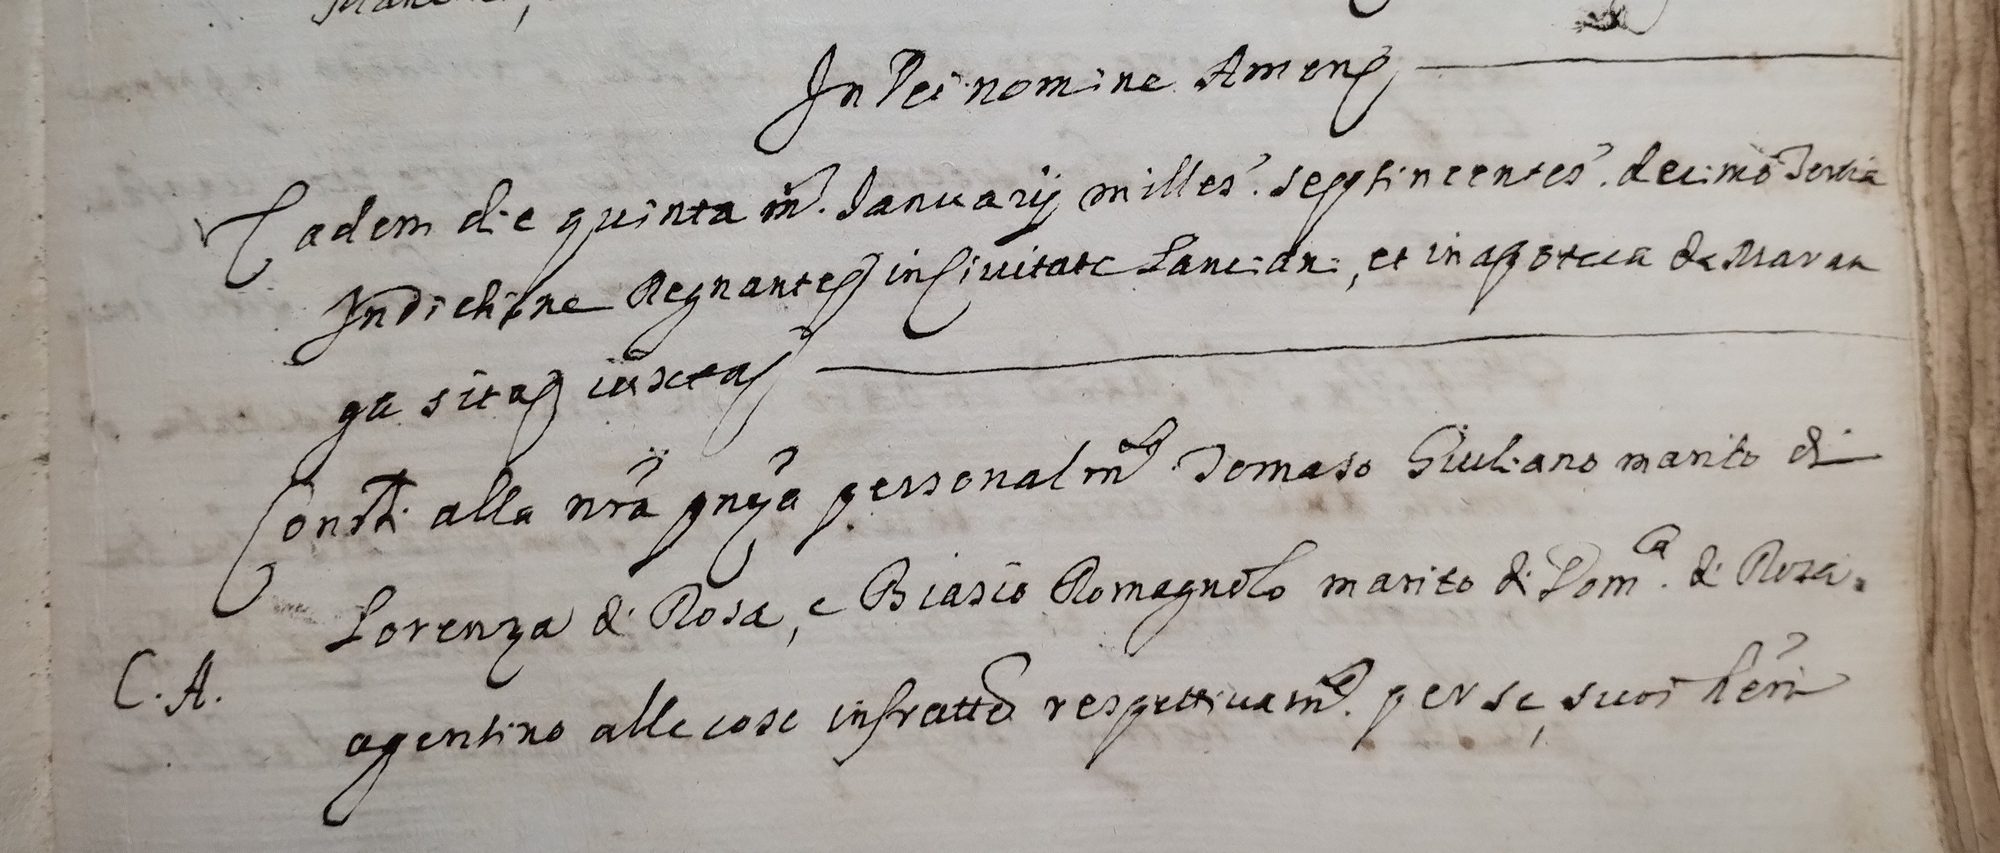 In Dei nomine Amen
Eadem die quinta m. Januarij milles. septincentes. decimo tertia
Indichine Regnante in Civitate Lanciani, et in apoteca de Maran
ga sita iuxta
Constti. alla nra pnza personalmte Tomaso Giuliano marito di
Lorenza di Rosa, e Biasio Romagnolo marito di Domca. di Rosa.
C. A.
agentino alle cose infratte respettivamte. per se, suoi heri